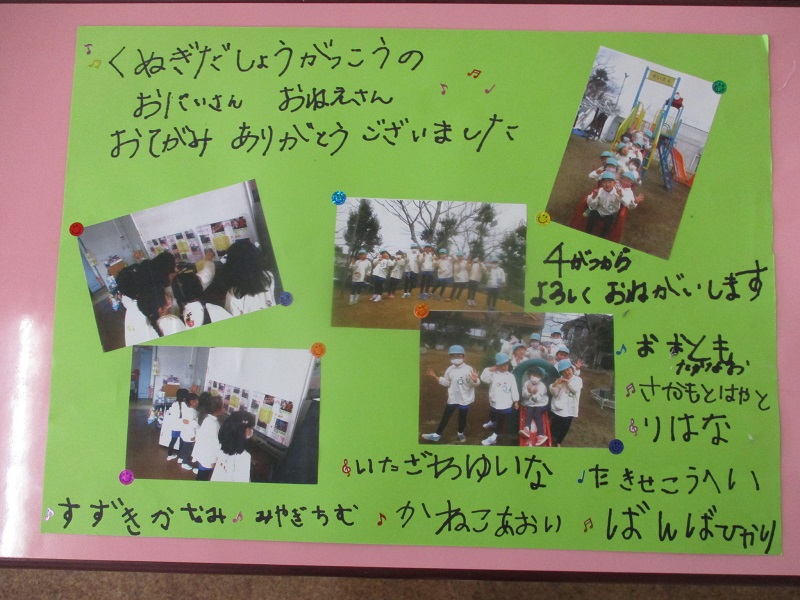 くぬぎだしょうがっこうの
おにいさん おねえさん
おてがみ ありがとう ございました
4がつから
よろしく おねがいします
おおとも
さかもとはやと
りはな
いたざわゆいな
たきせこうへい
すずきかなみ
みやぎちむ
かねこあおい
ばんばひかり